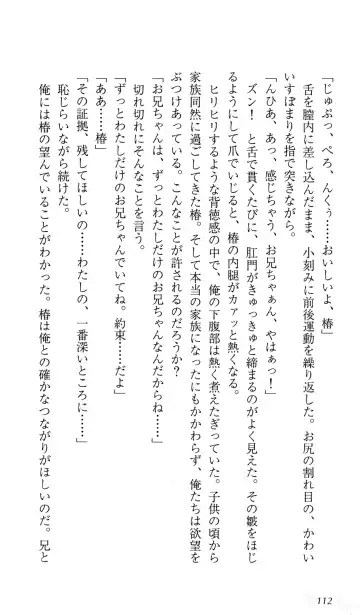 「じゅぷっ、ぺろ、んくぅ……おいしいよ、椿」
　舌を膣内に差し込んだまま、小刻みに前後運動を繰り返した。お尻の割れ目の、かわい
いすぼまりを指で突きながら。
「んひあ、あっ、感じちゃう、お兄ちゃぁん、やはぁっ！」
　ズン！　と舌で貫くたびに、肛門がきゅっきゅと締まるのがよく見えた。その皺をほじ
るようにして爪でいじると、椿の内腿がカァッと熱くなる。
　ヒリヒリするような背徳感の中で、俺の下腹部は熱く煮えたぎっていた。子供の頃から
家族同然に過ごしてきた椿。そして本当の家族になったにもかかわらず、俺たちは欲望を
ぶつけあっている。こんなことが許されるのだろうか？
「お兄ちゃんは、ずっとわたしだけのお兄ちゃんなんだからね……」
　切れ切れにそんなことを言う。
「ずっとわたしだけのお兄ちゃんでいてね。約束……だよ」
「ああ……椿」
「その証拠、残してほしいの……わたしの、一番深いところに……」
　恥じらいながら続けた。
　俺には椿の望んでいることがわかった。椿は俺との確かなつながりがほしいのだ。兄と
112